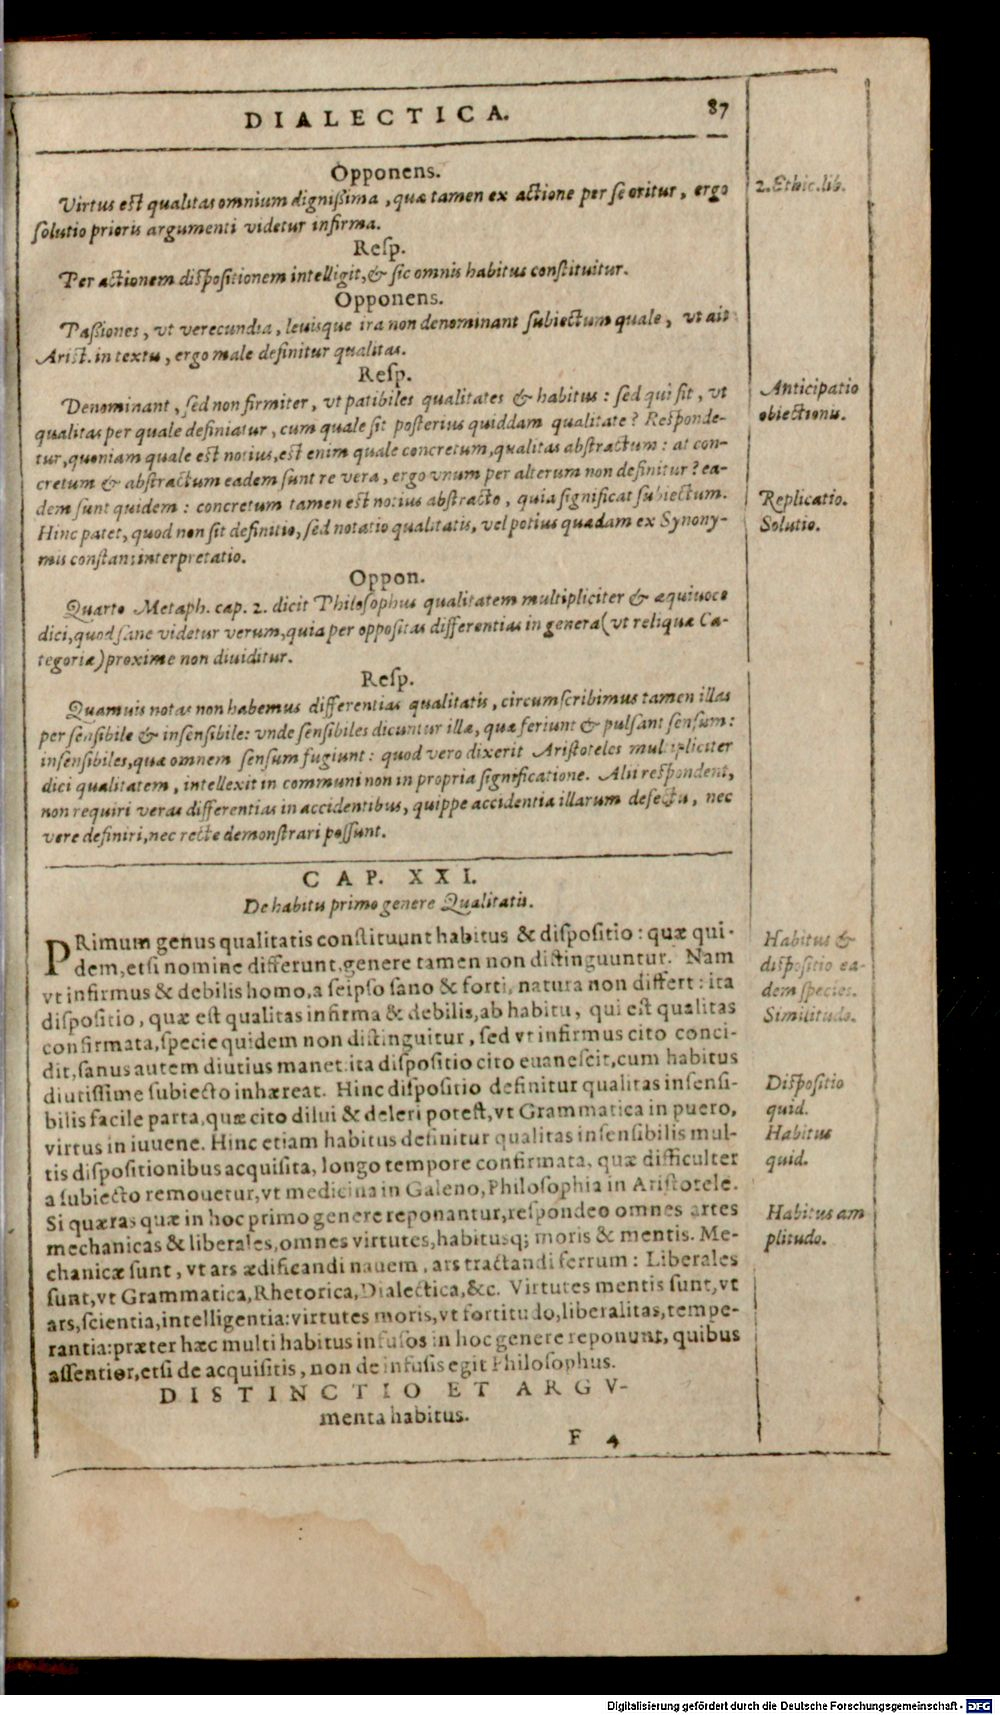 DIALECTICA. 87
Opponens.
Virtus est qualitas omnium dignißima, quæ tamen ex actione per se oritur, ergo
solutio prioris argumenti videtur infirma.
2. Ethic. lib.
Resp.
Per actionem dispositionem intelligit, & sic omnis habitus constituitur.
Opponens.
Paßiones, vt verecundia, leuisque ira non denominant subiectum quale, vt ait
Arist. in textu, ergo male definitur qualitas.
Resp.
Denominant, sed non firmiter, vt patibiles qualitates & habitus: sed qui fit, vt
qualitas per quale definiatur, cum quale sit posterius quiddam qualitate? Responde-
tur, quoniam quale est notius, est enim quale concretum, qualitas abstractum: at con-
cretum & abstractum eadem sunt re vera, ergo vnum per alterum non definitur? ea-
dem sunt quidem: concretum tamen est notius abstracto, quia significat subiectum.
Hinc patet, quod non sit definitio, sed notatio qualitatis, vel potius quædam ex Synony-
mis constans interpretatio.
Anticipatio
obiectionis.
Replicatio.
Solutio.
Oppon.
Quarto Metaph. cap. 2. dicit Philosophus qualitatem multipliciter & æquiuoce
dici, quod sane videtur verum, quia per oppositas differentias in genera (vt reliquæ Ca-
tegoriæ) proxime non diuiditur.
Resp.
Quamuis notas non habemus differentias qualitatis, circumscribimus tamen illas
per sensibile & insensibile: vnde sensibiles dicuntur illæ, quæ feriunt & pulsant sensum:
insensibiles, quæ omnem sensum fugiunt: quod vero dixerit Aristoteles multipliciter
dici qualitatem, intellexit in communi non in propria significatione. Alii respondent,
non requiri veras differentias in accidentibus, quippe accidentia illarum defectu, nec
vere definiri, nec recte demonstrari possunt.
CAP. XXI.
De habitu primo genere Qualitatis.
PRimum genus qualitatis constituunt habitus & dispositio: quæ qui-
dem, etsi nomine differunt, genere tamen non distinguuntur. Nam
vt infirmus & debilis homo, a seipso sano & forti, natura non differt: ita
dispositio, quæ est qualitas infirma & debilis, ab habitu, qui est qualitas
confirmata, specie quidem non distinguitur, sed vt infirmus cito conci-
dit, sanus autem diutius manet: ita dispositio cito euanescit, cum habitus
diutissime subiecto inhæreat. Hinc dispositio definitur qualitas insensi-
bilis facile parta, quæ cito dilui & deleri potest, vt Grammatica in puero,
virtus in iuuene. Hinc etiam habitus definitur qualitas insensibilis mul-
tis dispositionibus acquisita, longo tempore confirmata, quæ difficulter
a subiecto remouetur, vt medicina in Galeno, Philosophia in Aristotele.
Si quæras quæ in hoc primo genere reponantur, respondeo omnes artes
mechanicas & liberales, omnes virtutes, habitusq; moris & mentis. Me-
chanicæ sunt, vt ars ædificandi nauem, ars tractandi ferrum: Liberales
sunt, vt Grammatica, Rhetorica, Dialectica, &c. Virtutes mentis sunt, vt
ars, scientia, intelligentia: virtutes moris, vt fortitudo, liberalitas, tempe-
rantia: præter hæc multi habitus infusos in hoc genere reponunt, quibus
assentior, etsi de acquisitis, non de infusis egit Philosophus.
Habitus &
dispositio ea-
dem species.
Similitudo.
Dispositio
quid.
Habitus
quid.
Habitus am
plitudo.
DISTINCTIO ET ARGV-
menta habitus.
F 4
Digitalisierung gefördert durch die Deutsche Forschungsgemeinschaft - DFG